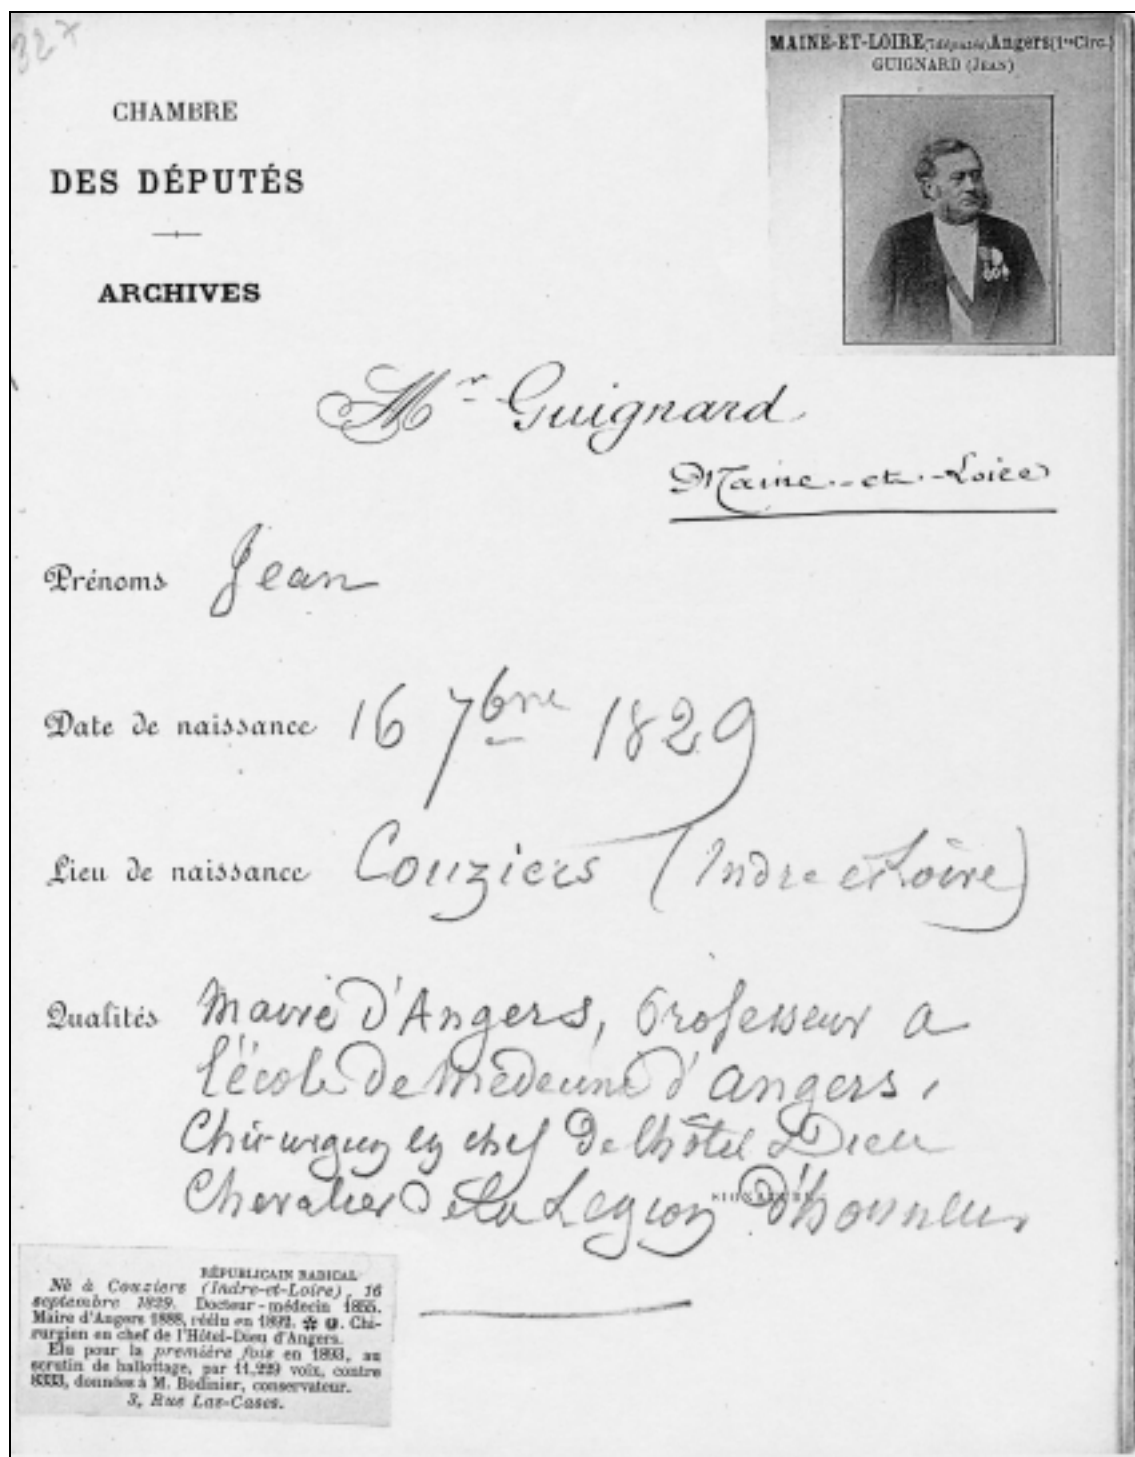 327
CHAMBRE
DES DÉPUTÉS
ARCHIVES
MAINE-ET-LOIRE (7 députés) Angers (1re Circ.)
GUIGNARD (JEAN)
Mr Guignard
Maine-et-Loire
Prénoms Jean
Date de naissance 16 7bre 1829
Lieu de naissance Couziers (Indre et Loire)
Qualités Maire d'Angers, Professeur a
l'école de Médecine d'angers,
Chirurgien en chef de l'hôtel Dieu
SIGNATURE
Chevalier de la Legion d'honneur
RÉPUBLICAIN RADICAL
Né à Couziers (Indre-et-Loire), 16
septembre 1829. Docteur-médecin 1855.
Maire d'Angers 1888, réélu en 1892. Chi-
rurgien en chef de l'Hôtel-Dieu d'Angers.
Elu pour la première fois en 1893, au
scrutin de ballottage, par 11,229 voix, contre
8333, données à M. Bodinier, conservateur.
3, Rue Las-Cases.